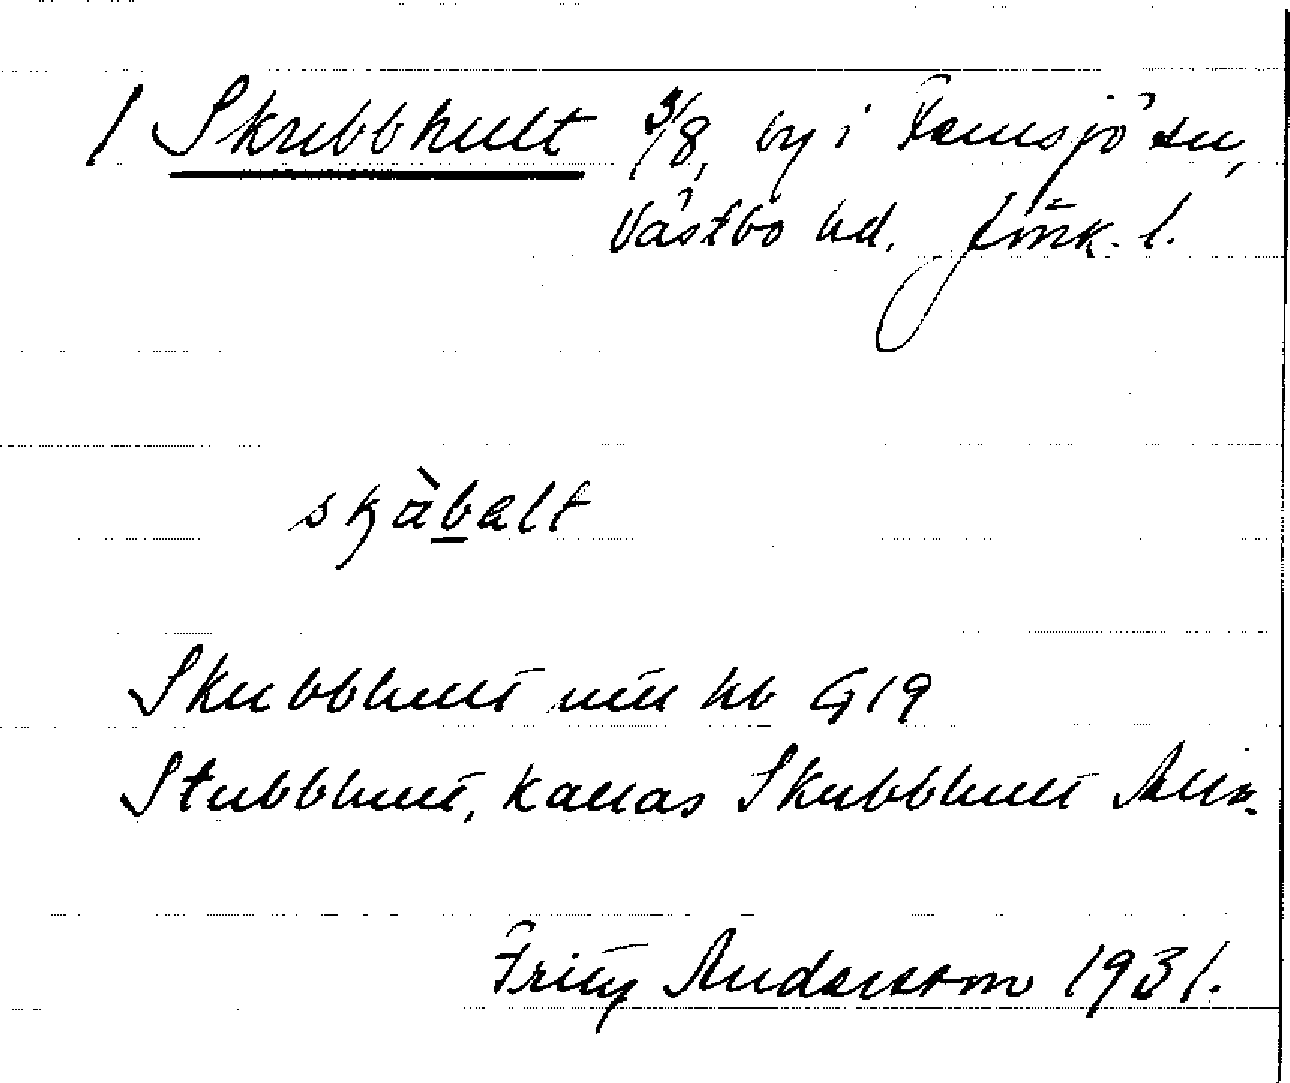 / Skrubbhult 3/8, by i Femsjö sn,
Västbo hd. Jönk. l.
skàbalt
Skubbhult utt hb G19
Stubbhult, kallas Skubbhult Allm.
Fritz Andersson 1931.